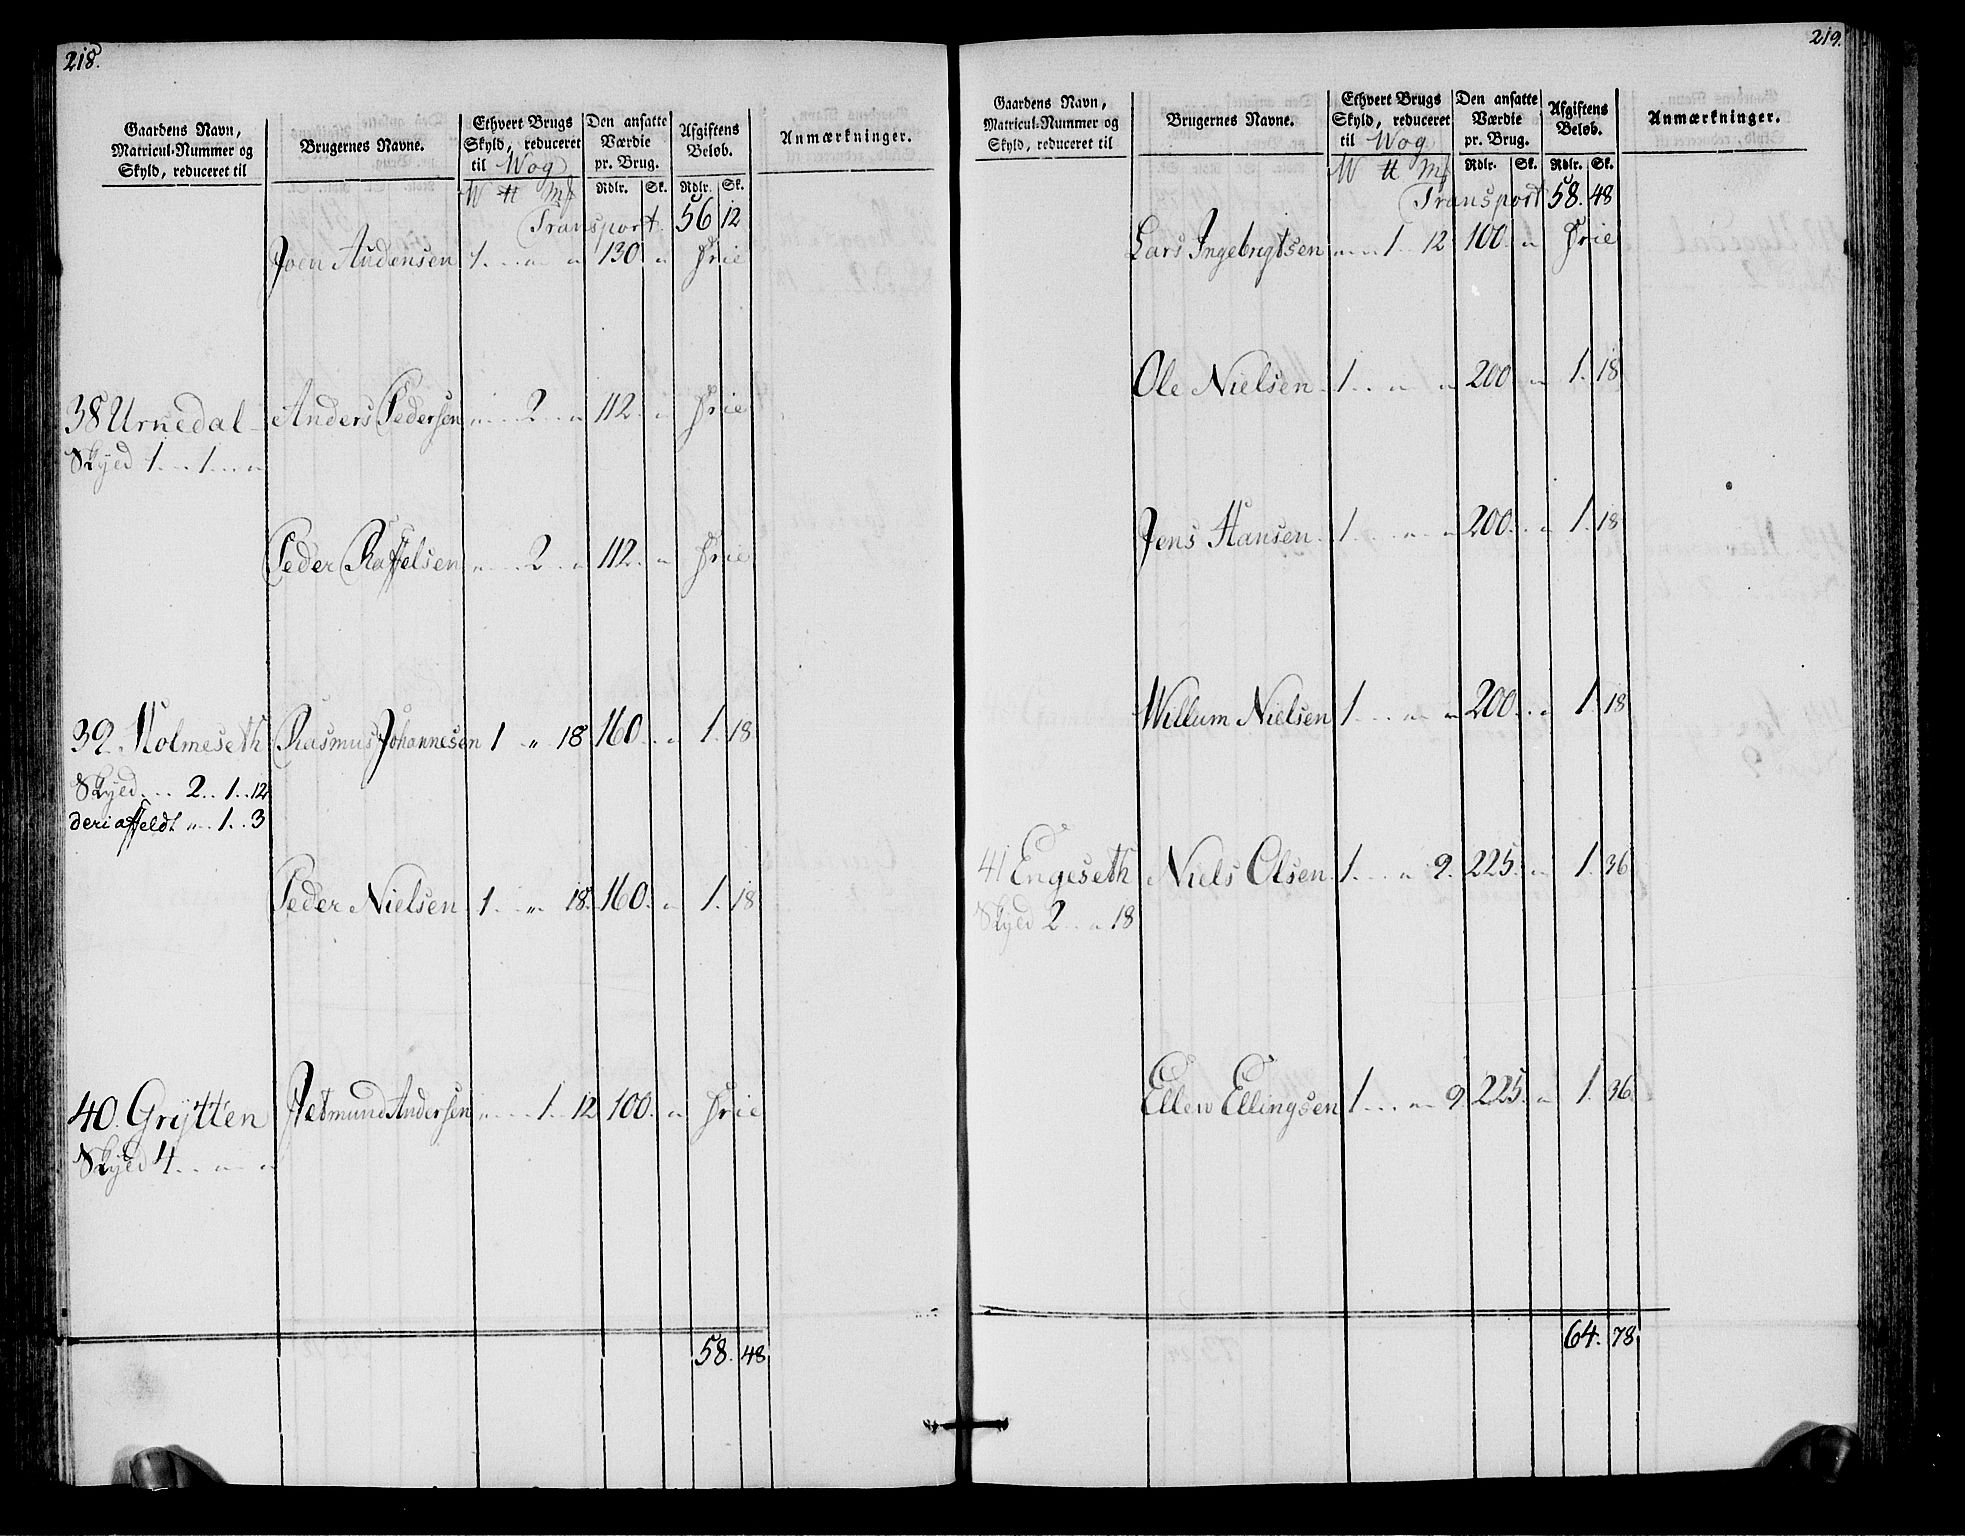 218.
Gaardens Navn, Matricul-Nummer og Skyld, reduceret til
Brugernes Navne.
Ethvert Brugs Skyld, reduceret til Wog
Den ansatte Værdie pr. Brug.
Afgiftens Beløb.
Anmærkninger.
W ℔ Mk Rdlr. Sk. Rdlr. Sk.
Transport. 56 12
Joen Andensen 1 . . „ „ 130 „ Frie
38 Urnedal Anders Pedersen „ . . 2 . . „ 112. „ Frie
Skyld 1 . . 1 . . „
Peder Raffelsen „ . . 2 . . „ 112. „ Frie
39. Holmeseth Rasmus Johannesen 1 „ 18 160. . „ 1. 18
Skyld . . 2 . . 1 . . 12
deri affeldt „ . . 1 . . 3
Peder Nielsen 1 . „ 18. 160. „ 1. 18
40. Grytten Andersen „ . . 1 . 12 100. „ Frie
Skyld 4 . . „ „
58. 48
219.
Gaardens Navn, Matricul-Nummer og Skyld, reduceret til
Brugernes Navne.
Ethvert Brugs Skyld, reduceret til Wog
Den ansatte Værdie pr. Brug.
Afgiftens Beløb.
Anmærkninger.
W ℔ Mk Rdlr. Sk. Rdlr. Sk.
Transport 58. 48
Lars Ingebrigtsen „ . . 1 . . 12 100. „ Frie
Ole Nielsen 1 . . „ „ 200 „ 1. 18
Jens Hansen 1 . . „ „ 200. . „ 1. 18
Willum Nielsen 1 . . „ „ 200. . „ 1. 18
41 Engeseth Niels Olsen 1 . . „ 9. 225. „ 1. 36
Skyld 2 . . „ 18
Ellew Ellingsen 1 . . „ 9 225. „ 1. 36.
64. 78